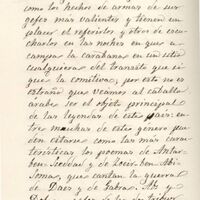 como los hechos de armas de sus
gefes mas valientes y tienen un
placer al referirlos y otros de escu
charlos en las noches en que a
campa la carabana en un sitio
cualquiera del transito que si
gue la comitiva; por esto no es
estraño que veamos al caballo
arabe ser el objeto principal
de las leyendas de este pais: en
tre muchas de este genero pueden
citarse como las mas carac
teristicas los poemas de Antar-
ben- y de Zoeir-ben-Abi-
Soma, que cantan la guerra
de Daes y de Gabra. Abs y